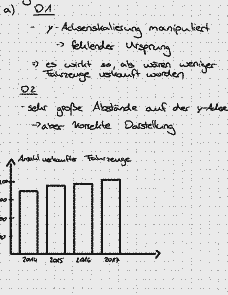 a) D1
- y-Achsenskalierung manipuliert
-> fehlender Ursprung
=> es wirkt so, als wären weniger
Fahrzeuge verkauft worden
D2
- sehr große Abstände auf der y-Achse
-> aber korrekte Darstellung
Anzahl verkaufter Fahrzeuge
2014 2015 2016 2017